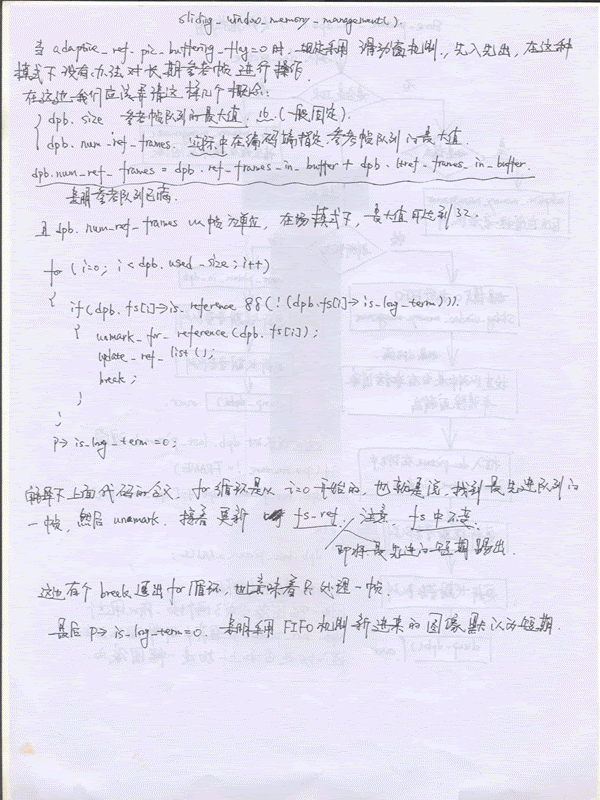 sliding_window_memory_management().
当 adaptive_ref_pic_buffering_flag=0时, 规定采用 滑动窗机制, 先入先出, 在这种
模式下没有办法对长期参考帧进行操作.
在这边我们应该弄清这样几个概念:
dpb.size 参考帧队列的最大值, (一般固定).
dpb.num_ref_frames. 实际中在编码端指定参考帧队列的最大值.
dpb.num_ref_frames = dpb.ref_frames_in_buffer + dpb.ltref_frames_in_buffer.
表明参考队列已满.
且 dpb.num_ref_frames 以帧为单位, 在场模式下, 最大值可达到32.
for (i=0; i<dpb.used_size; i++)
{ if(dpb.fs[i]->is_reference && (!(dpb.fs[i]->is_log_term)))
{ unmark_for_reference(dpb.fs[i]);
update_ref_list();
break;
}
}
p->is_log_term=0;
解释下上面代码的含义. for循环是从 i=0开始的, 也就是说, 找到最先进队列的
一帧, 然后 unmark. 接着更新 fs_ref. 注意 fs中不变.
即将最先进的短期踢出.
这边有个break退出for循环. 也意味着只处理一帧.
最后 p->is_log_term=0. 表明采用FIFO机制新进来的图像默认为短期.